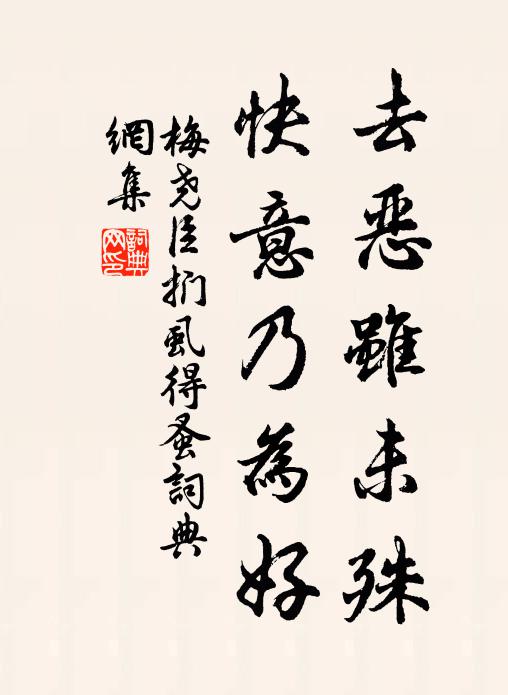 去惡雖未殊
快意乃為好
梅堯臣捫虱得蚤詞典
網集
詞典
网印